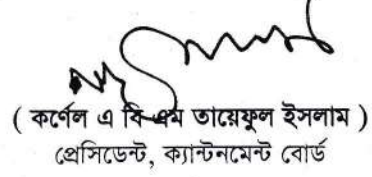 ( কর্ণেল এ বি এম তায়েফুল ইসলাম )
প্রেসিডেন্ট, ক্যান্টনমেন্ট বোর্ড